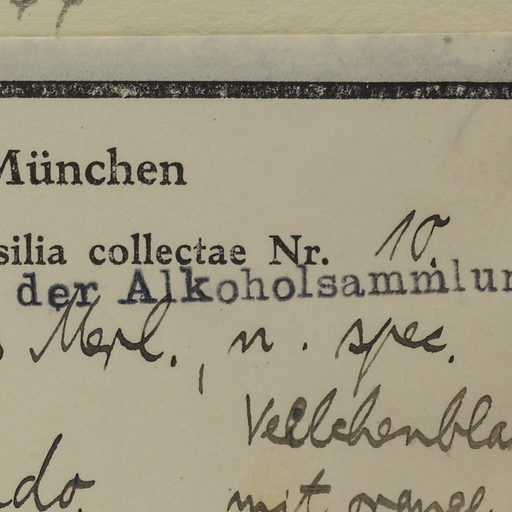 München
silia collectae Nr. 10.
der Alkoholsammlun
Merl., n. spec.
Veilchenbla
do.
mit orange